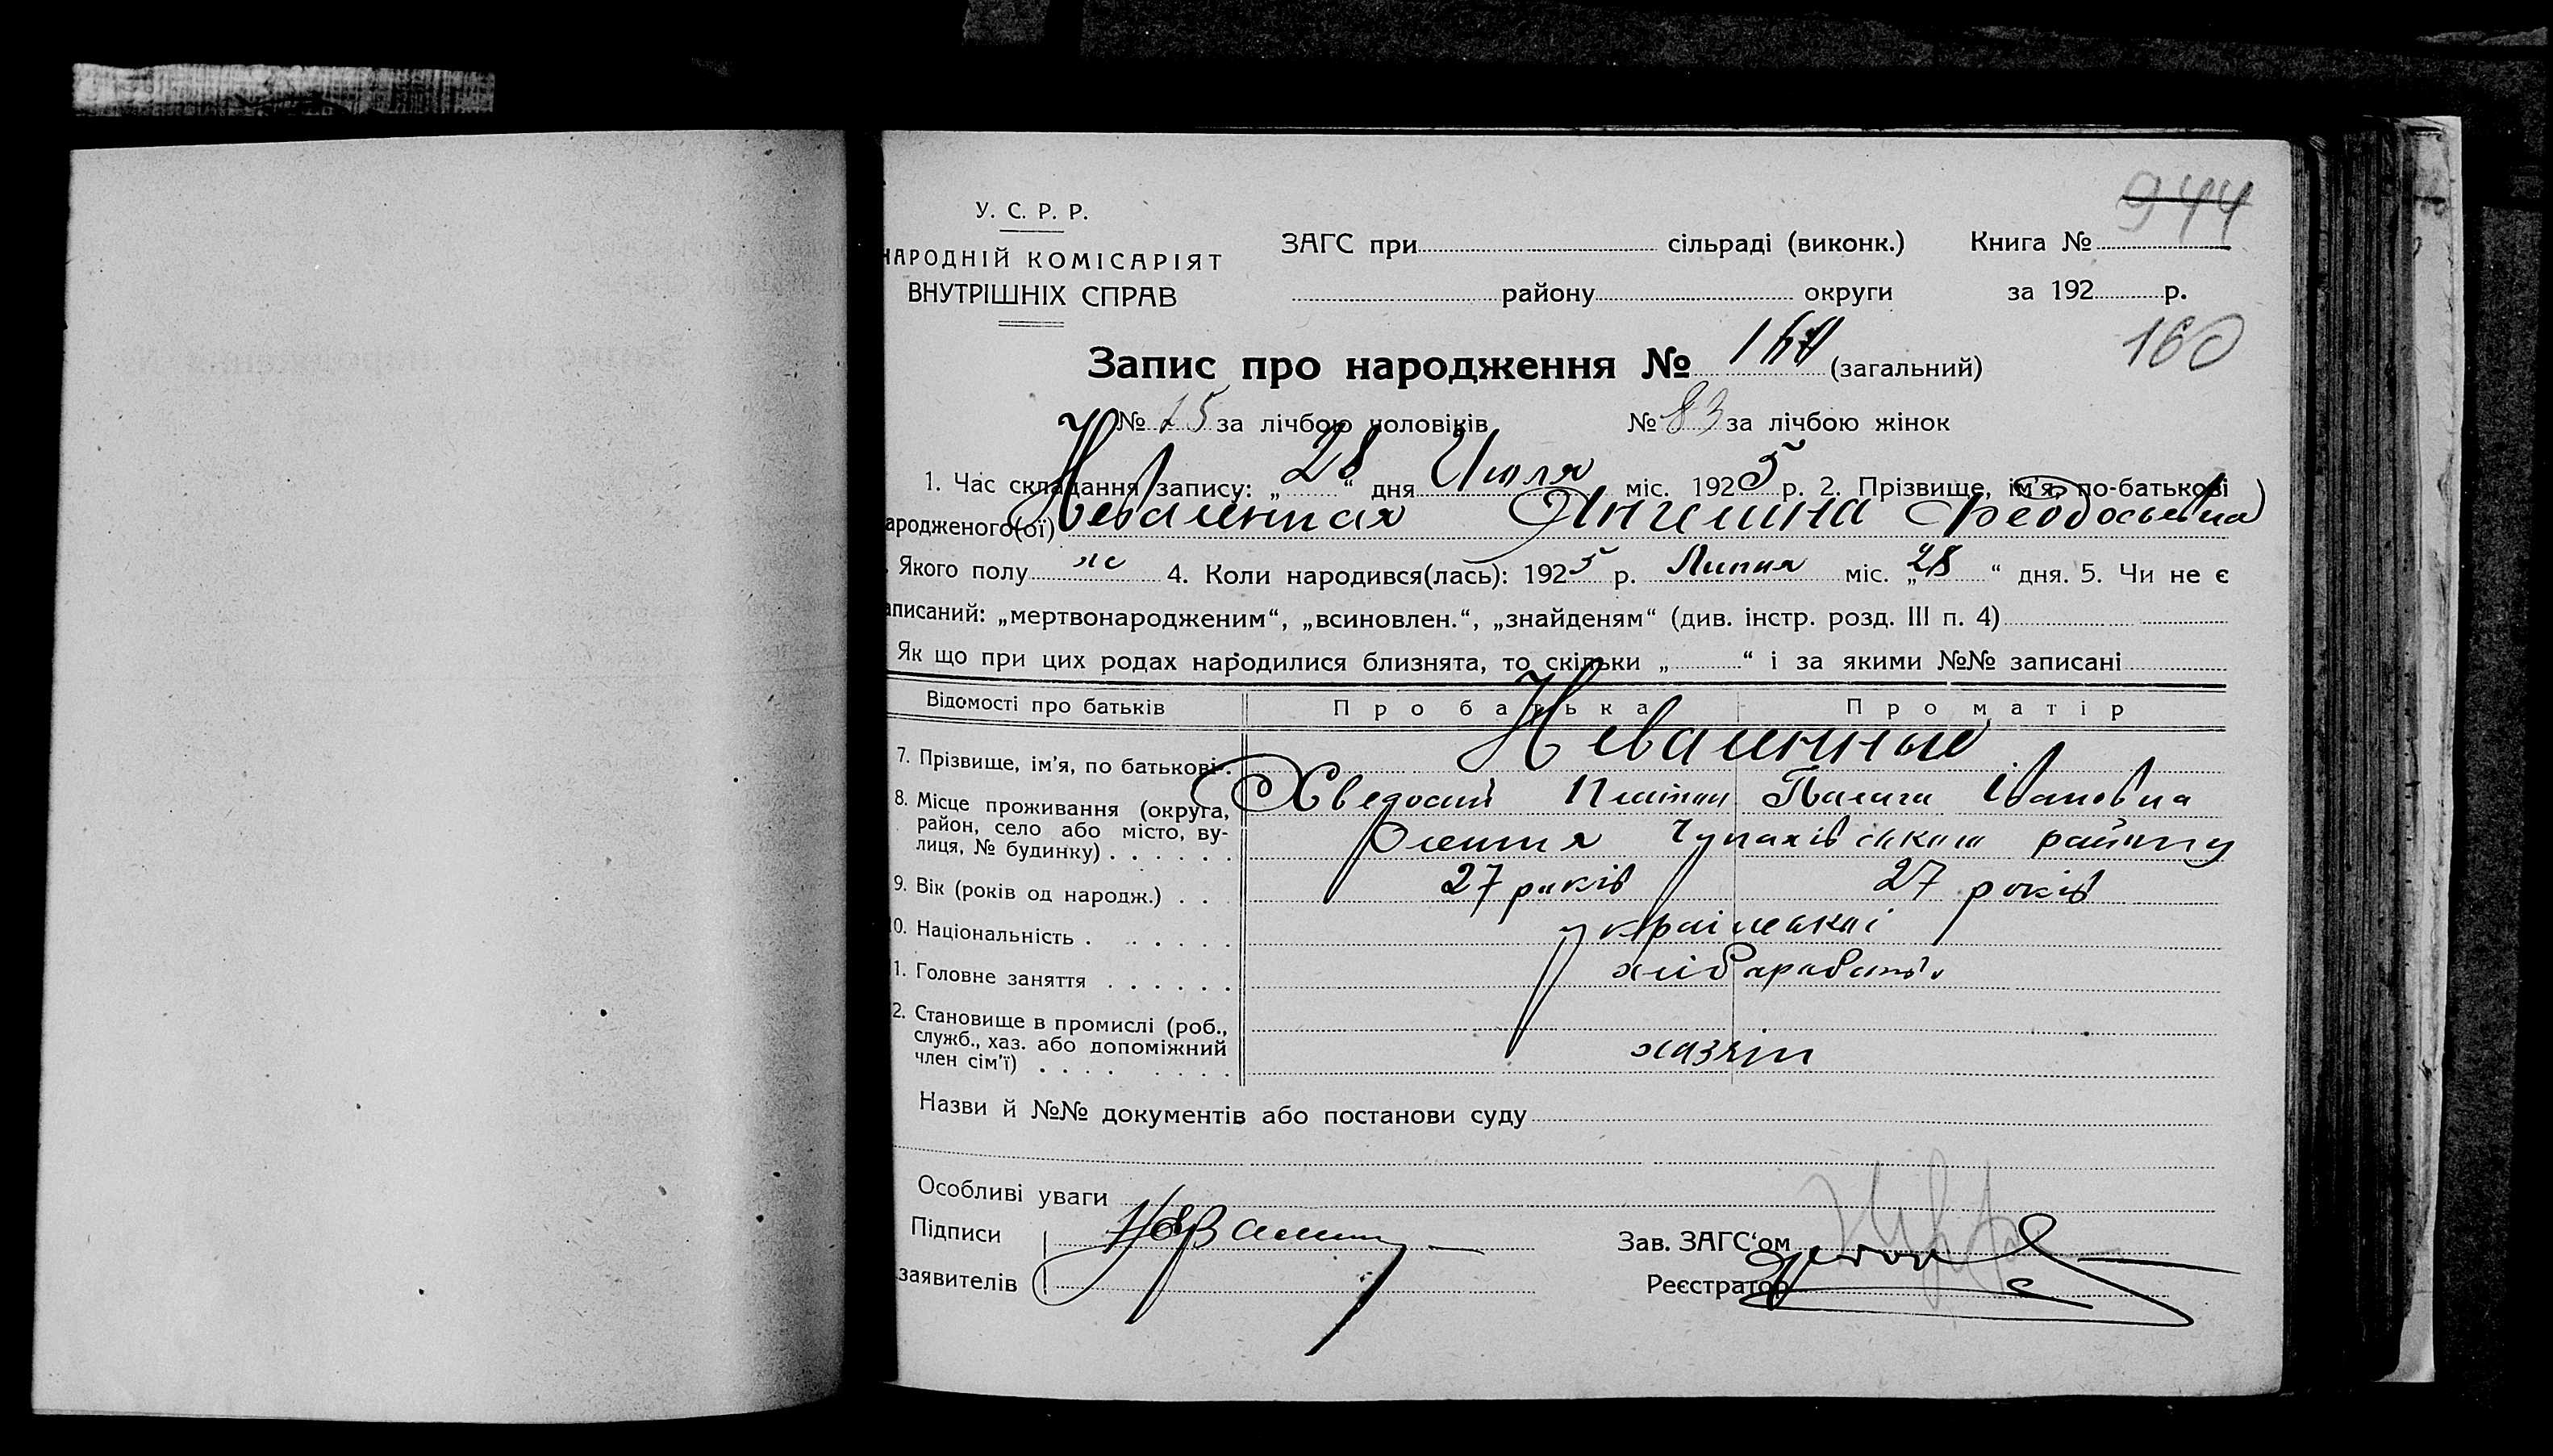 944
У. С. Р. Р.
НАРОДНІЙ КОМІСАРІЯТ
ВНУТРІШНІХ СПРАВ
ЗАГС при сільраді (виконк.) Книга №
району округи за 192 р.
160
Запис про народження № (загальний)
№ 75 за лічбою чоловіків № 83 за лічбою жінок
1. Час складання запису: „28“ дня Июля міс. 1925 р. 2. Прізвище, ім'я, по-батькові
ародженого(ої) Неваленная Ангелина Феодосьевна
Якого полу ж 4. Коли народився(лась): 1925 р. Липня міс. „28“ дня. 5. Чи не є
аписаний: „мертвонародженим“, „всиновлен.“, „знайденям“ (див. інстр. розд. III п. 4)
Як що при цих родах народилися близнята, то скільки „ “ і за якими №№ записані
Відомості про батьків Про батька Про матір
Неваленные
7. Прізвище, ім'я, по батькові Хведосий Платон Палага Івановна
8. Місце проживання (округа, район, село або місто, вулиця, № будинку) Олешня Чупахівського району
9. Вік (років од народж.) 27 років 27 років
0. Національність української
1. Головне заняття хліборобство
2. Становище в промислі (роб., служб., хаз. або допоміжний член сім'ї) хазяін
Назви й №№ документів або постанови суду
Особливі уваги
Підписи
заявителів
Зав. ЗАГС'ом
Реєстратор